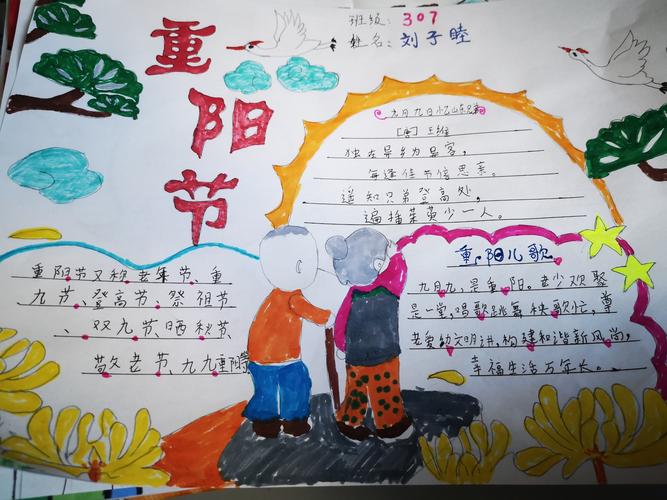 重阳节
班级：307
姓名：刘子睦
九月九日忆山东兄弟
［唐］王维
独在异乡为异客，
每逢佳节倍思亲。
遥知兄弟登高处，
遍插茱萸少一人。
重阳节又称老年节、重
九节、登高节、祭祖节
、双九节、晒秋节
、敬老节、九九重阳
重阳儿歌
九月九，是重阳。老少欢聚
是一堂，唱歌跳舞秧歌忙，尊
老爱幼文明讲，构建和谐新风尚，
幸福生活万年长。